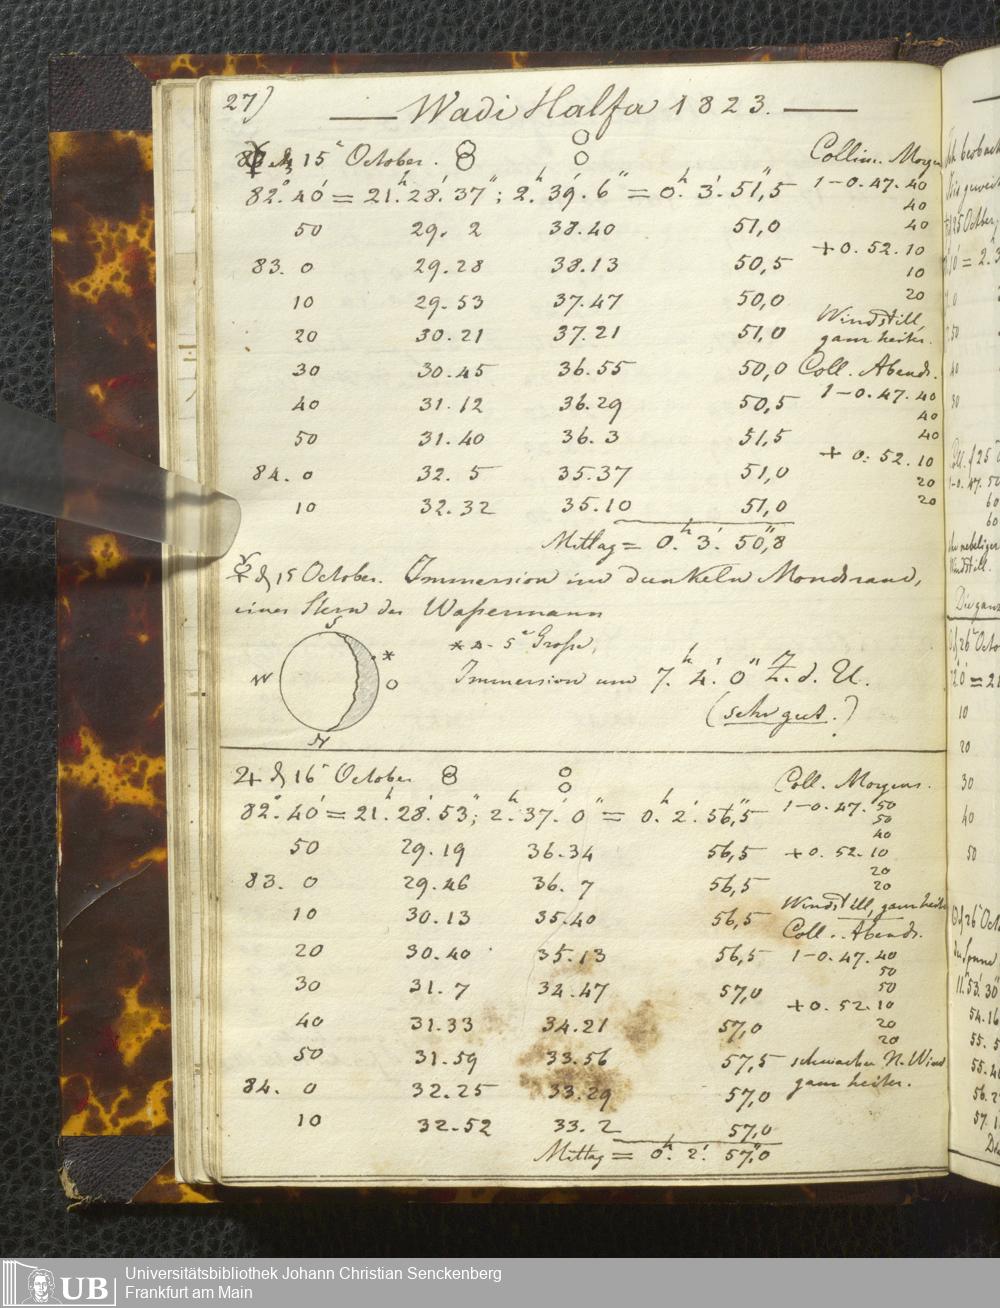 27)
Wadi Halfa 1823.
☿ d 15ᵗ October.
82°. 40' = 21ʰ. 28'. 37"; 2ʰ. 39'. 6" = 0ʰ. 3'. 51",5
50 29. 2 38.40 51,0
83. 0 29.28 38.13 50,5
10 29.53 37.47 50,0
20 30.21 37.21 51,0
30 30.45 36.55 50,0
40 31.12 36.29 50,5
50 31.40 36. 3 51,5
84. 0 32. 5 35.37 51,0
10 32.32 35.10 51,0
Mittag = 0ʰ. 3'. 50",8
Collim. Morgen
1-0. 47. 40
40
40
+0. 52. 10
10
20
Windstill,
ganz heiter.
Coll. Abends.
1-0. 47. 40
40
40
+ 0. 52. 10
20
20
☿ d 15 October. Immersion im dunkeln Mondrand,
eines Stern des Waßermann
S
W
O
N
*
5ᵗ Große,
Immersion um 7ʰ. 4'. 0" Z. d. U.
(sehr gut.)
♃ d 16ᵗ October
82°. 40' = 21ʰ. 28'. 53"; 2ʰ. 37'. 0" = 0ʰ. 2'. 56",5
50 29.19 36.34 56,5
83. 0 29.46 36. 7 56,5
10 30.13 35.40 56,5
20 30.40 35.13 56,5
30 31.7 34.47 57,0
40 31.33 34.21 57,0
50 31.59 33.56 57,5
84. 0 32.25 33.29 57,0
10 32.52 33. 2 57,0
Mittag = 0ʰ. 2'. 57",0
Coll. Morgens.
1-0. 47. 50
50
40
+0. 52. 10
20
20
Windstill, ganz heiter
Coll. Abends.
1-0. 47. 40
50
50
+0. 52. 10
20
20
schwacher N. Wind
ganz heiter.
Universitätsbibliothek Johann Christian Senckenberg
Frankfurt am Main
UB